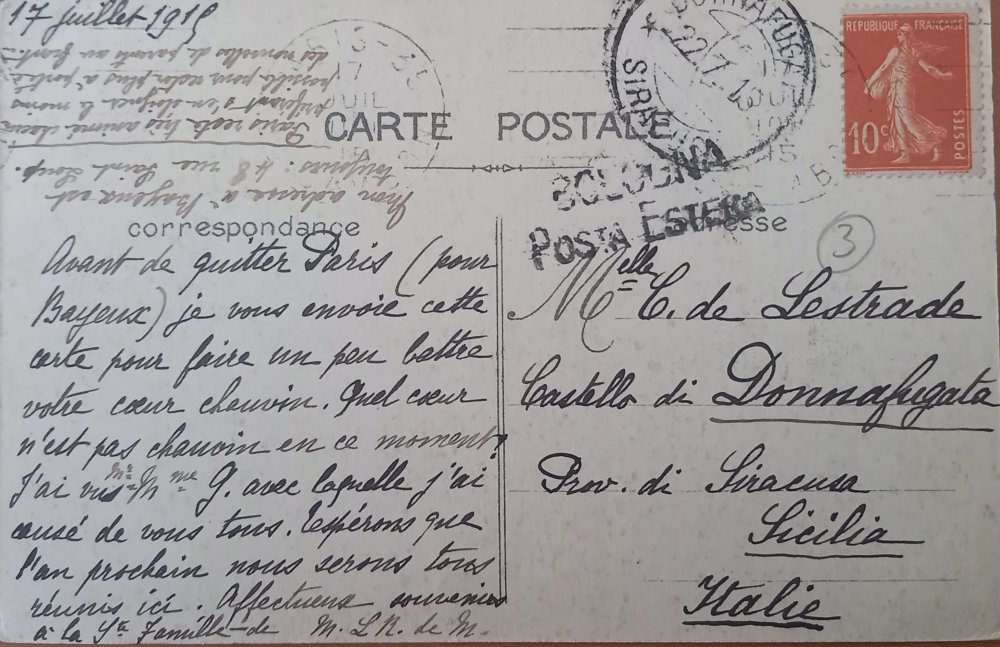 17 juillet 1915
CARTE POSTALE
correspondance
Adresse
REPUBLIQUE FRANÇAISE
10c
POSTES
DONNAFUGATA
22.7.15
BOLOGNA
POSTA ESTERA
3
Avant de quitter Paris (pour
Bayeux) je vous envoie cette
carte pour faire un peu battre
votre cœur chauvin. Quel cœur
n'est pas chauvin en ce moment?
J'ai vu Mr Mme G. avec laquelle j'ai
causé de vous tous. Espérons que
l'an prochain nous serons tous
réunis ici. Affectueux souvenirs
à la Ste Famille de M. L R. de M.
Mon adresse à Bayeux est
toujours : 48 rue Saint Loup.
Paris reste très animé
préférant s'en éloigner le moins
possible pour rester plus à portée
des nouvelles de parents au front
Melle C. de Lestrade
Castello di Donnafugata
Prov. di Siracusa
Sicilia
Italie